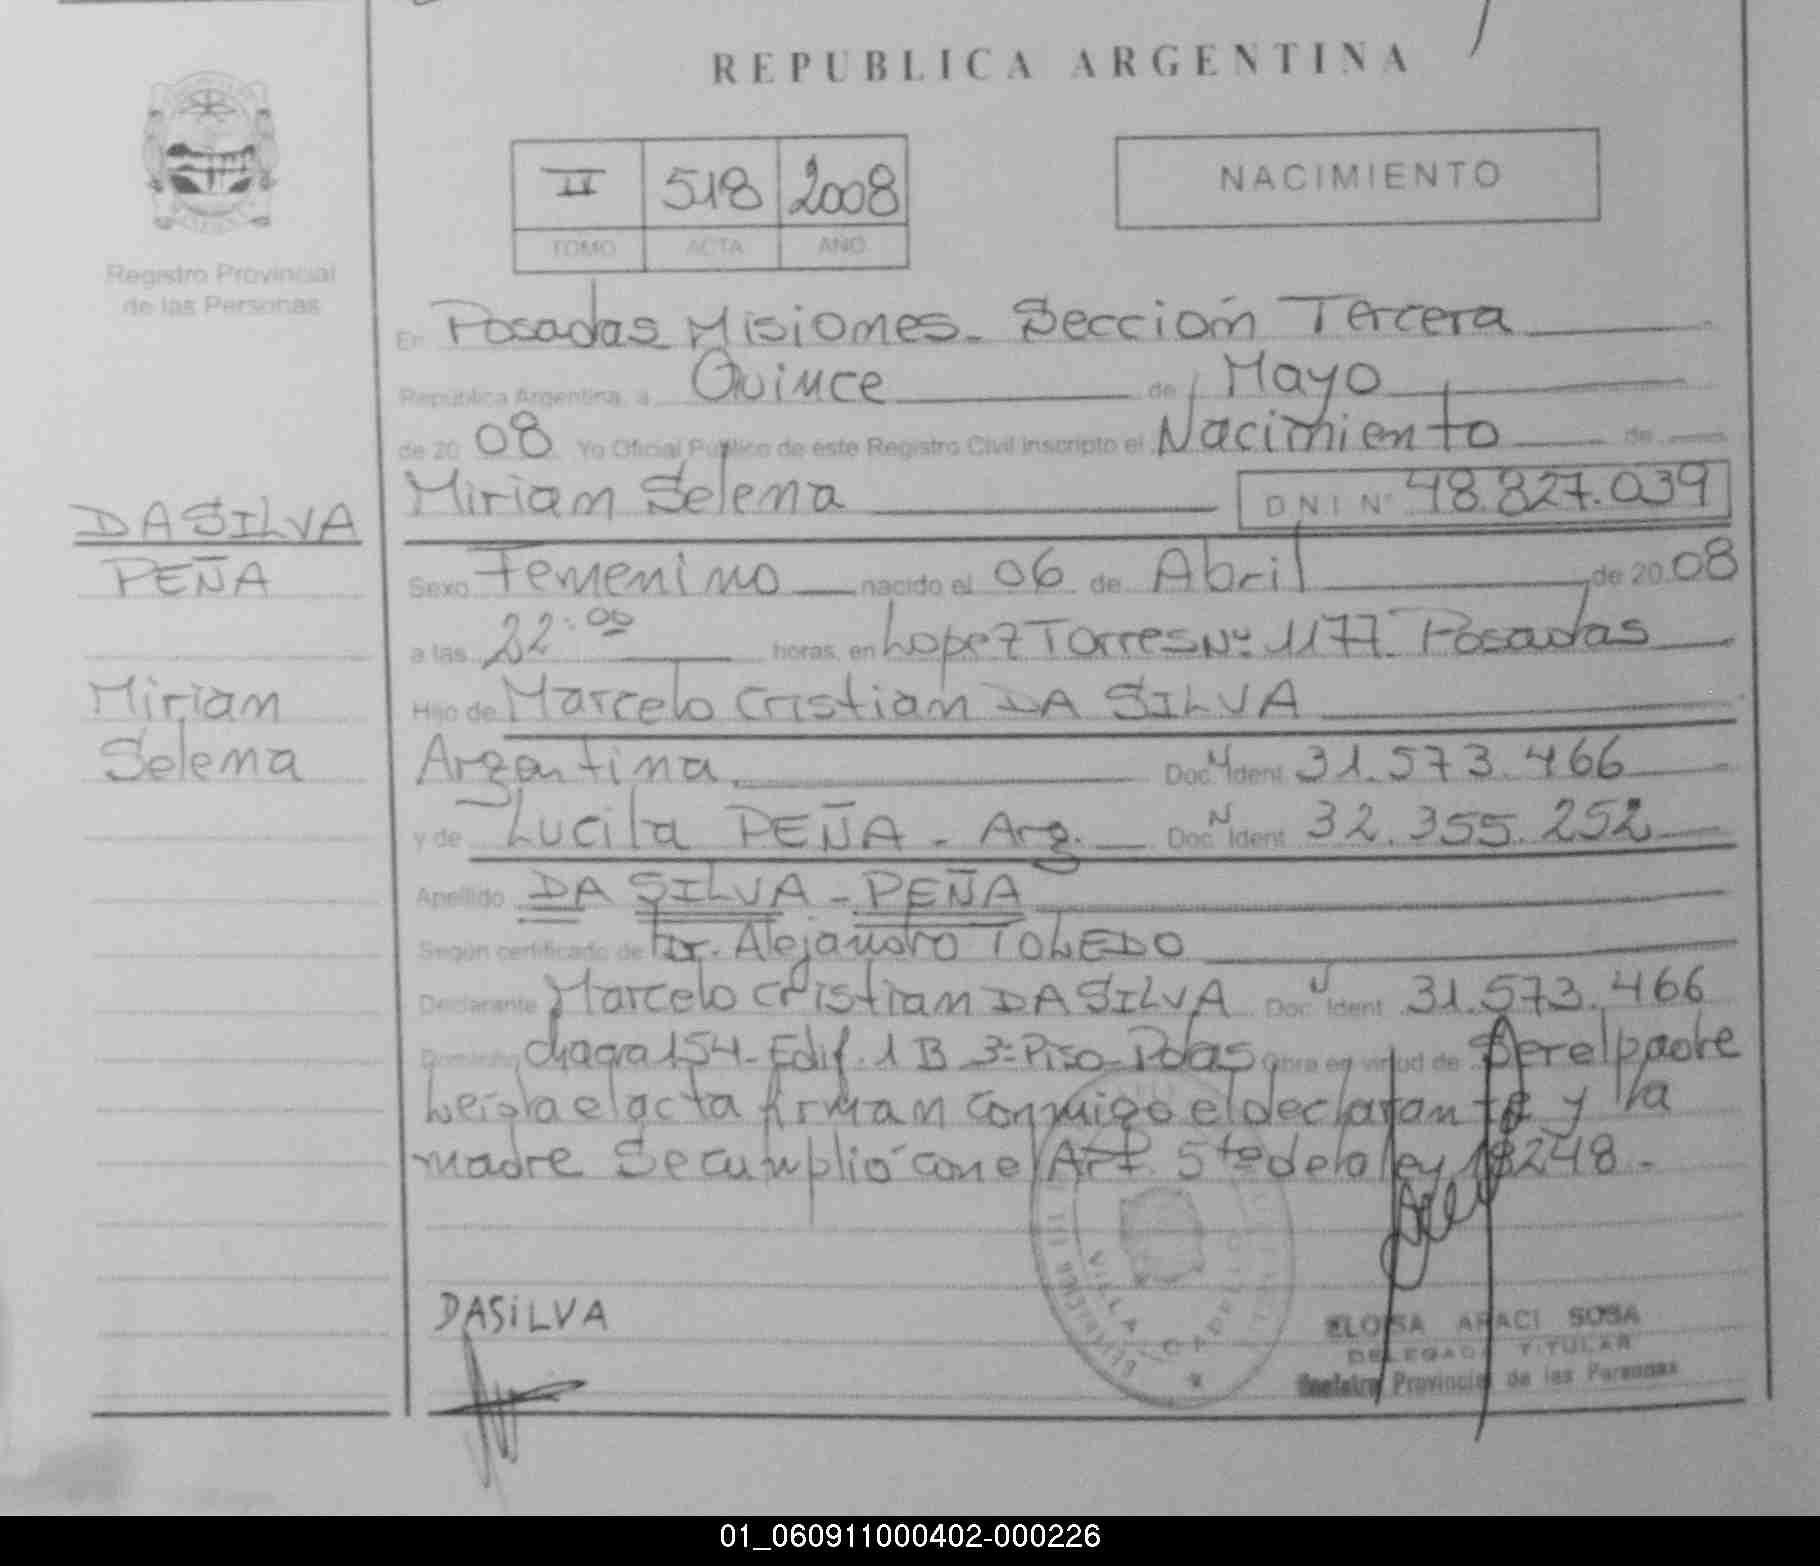 REPUBLICA ARGENTINA
II 518 2008
TOMO ACTA AÑO
NACIMIENTO
Registro Provincial
de las Personas
En Posadas Misiones. Sección Tercera
República Argentina, a Quince de Mayo
de 20 08 Yo Oficial Público de este Registro Civil Inscripto el Nacimiento de
Miriam Selena DNI Nº 48.827.039
DA SILVA
PEÑA
Miriam
Selena
Sexo Femenino nacido el 06 de Abril de 20 08
a las 22:00 horas, en Lopez Torres Nº 1177. Posadas
Hijo de Marcelo Cristian DA SILVA
Argentina. Doc. Ident 31.573.466
y de Lucila PEÑA - Arg. Doc. Ident 32.355.252
Apellido DA SILVA - PEÑA
Según certificado de Dr. Alejandro TOLEDO
Declarante Marcelo Cristian DA SILVA Doc. Ident 31.573.466
Domicilio chacra 154 - Edif. 1 B 3º Piso - Pdas Obra en virtud de Ser el padre
Leida el acta firman conmigo el declarante y la
madre Se cumplió con el Art. 5to de la ley 18248.-
DASiLVA
VILLA
ELOISA ARACI SOSA
DELEGADA TITULAR
Registro Provincial de las Personas
01_060911000402-000226